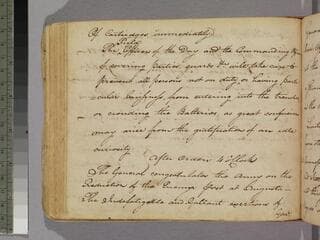 Of Cartridges immediately
Field
The Officer of the Day and the Commanding
of covering parties guards &c will take care to
prevent all persons not on duty or having parti
cular business from entering into the trenches
or crowding the Batteries as great confusion
may arise from the gratification of an idle
curiosity
After Orders 4 oClock
The General congratulates the Army on the
Reduction of the Enemys Post at Augusta
The Indefatigable and Gallant exertions of